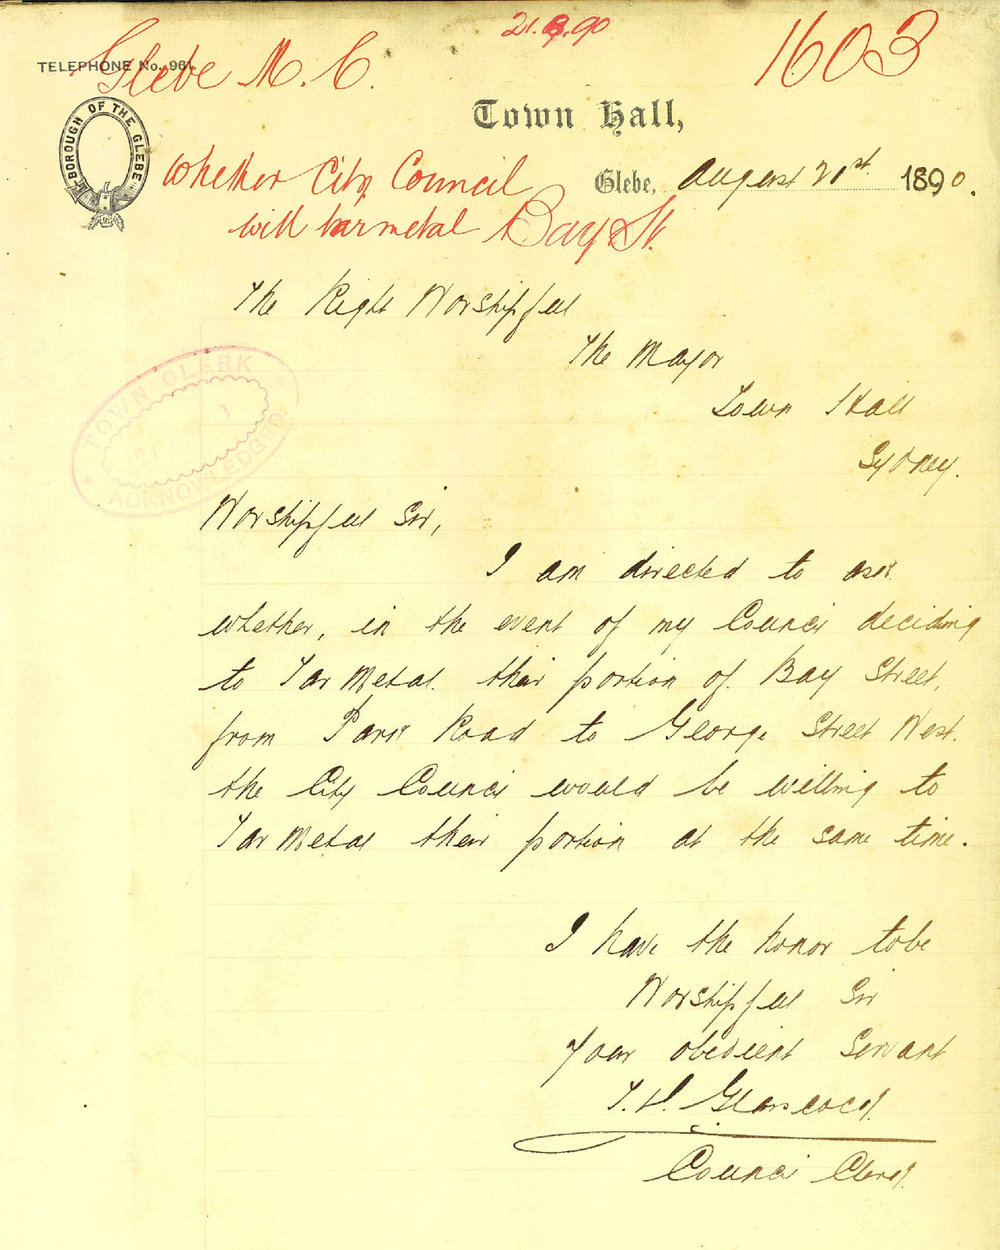 21.8.90
1603
Glebe M. C.
TELEPHONE No. 961.
BOROUGH OF THE GLEBE
Town Hall,
Whether City Council
Glebe, August 21st 1890.
will tarmetal Bay St.
The Right Worshipful
The Mayor
Town Hall
Sydney.
TOWN CLERK
ACKNOWLEDGED
Worshipful Sir,
I am directed to ask
whether, in the event of my Council deciding
to Tar Metal their portion of Bay Street,
from Park Road to George Street West.
the City Council would be willing to
Tar Metal their portion at the same time.
I have the honor to be
Worshipful Sir
Your obedient Servant
T. H. Glasscock
Council Clerk